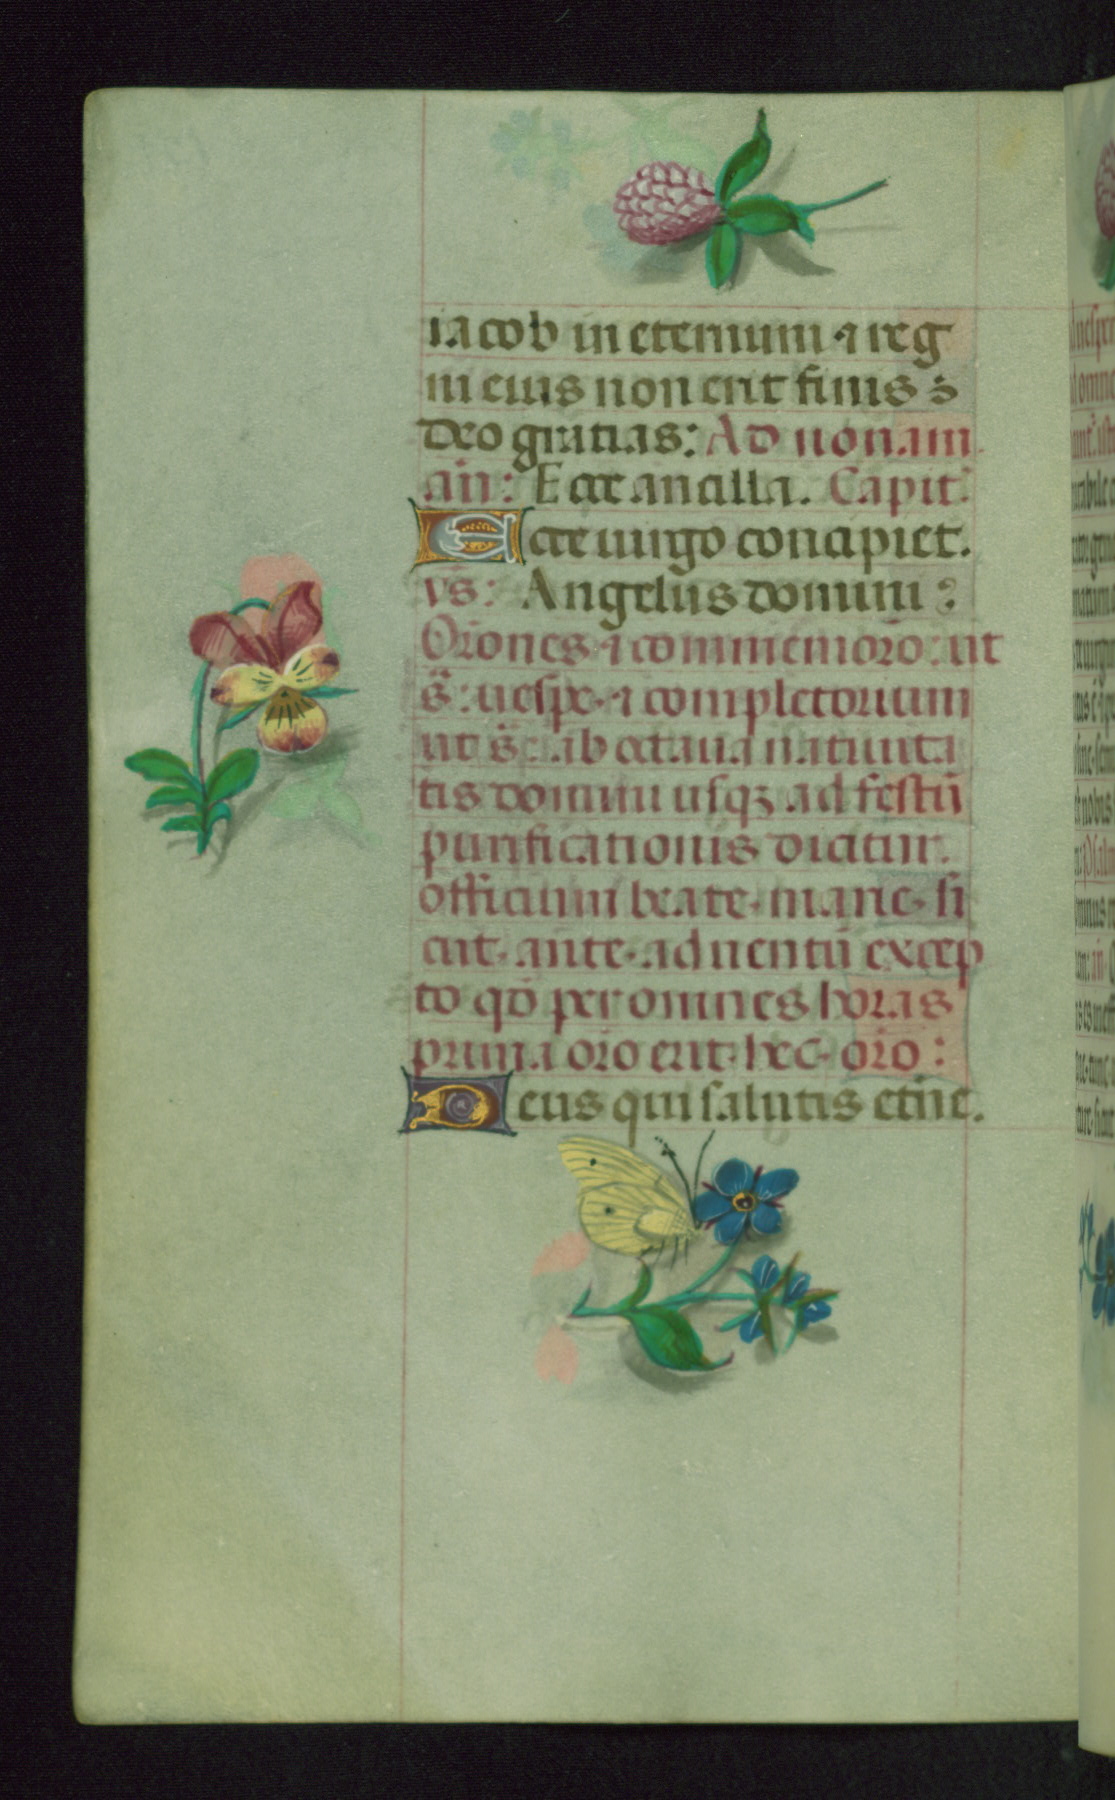 iacob in eternum ⁊ reg
ni eius non erit finis :
deo gratias: Ad nonam
an̄: Ecce ancilla. Capit̄.
Ecce uirgo concipiet.
vs̄: Angelus domini :
Or̄ones ⁊ commemor̄o: ut
s̄: uespe. ⁊ completorium
ut s̄: ab octaua natiuita
tis domini usqꝫ ad festū
purificationis dicitur.
officium beate marie si
cut ante aduentū excep
to qd̄ per omnes horas
prima or̄o erit hec or̄o :
Deus qui salutis etn̄e.